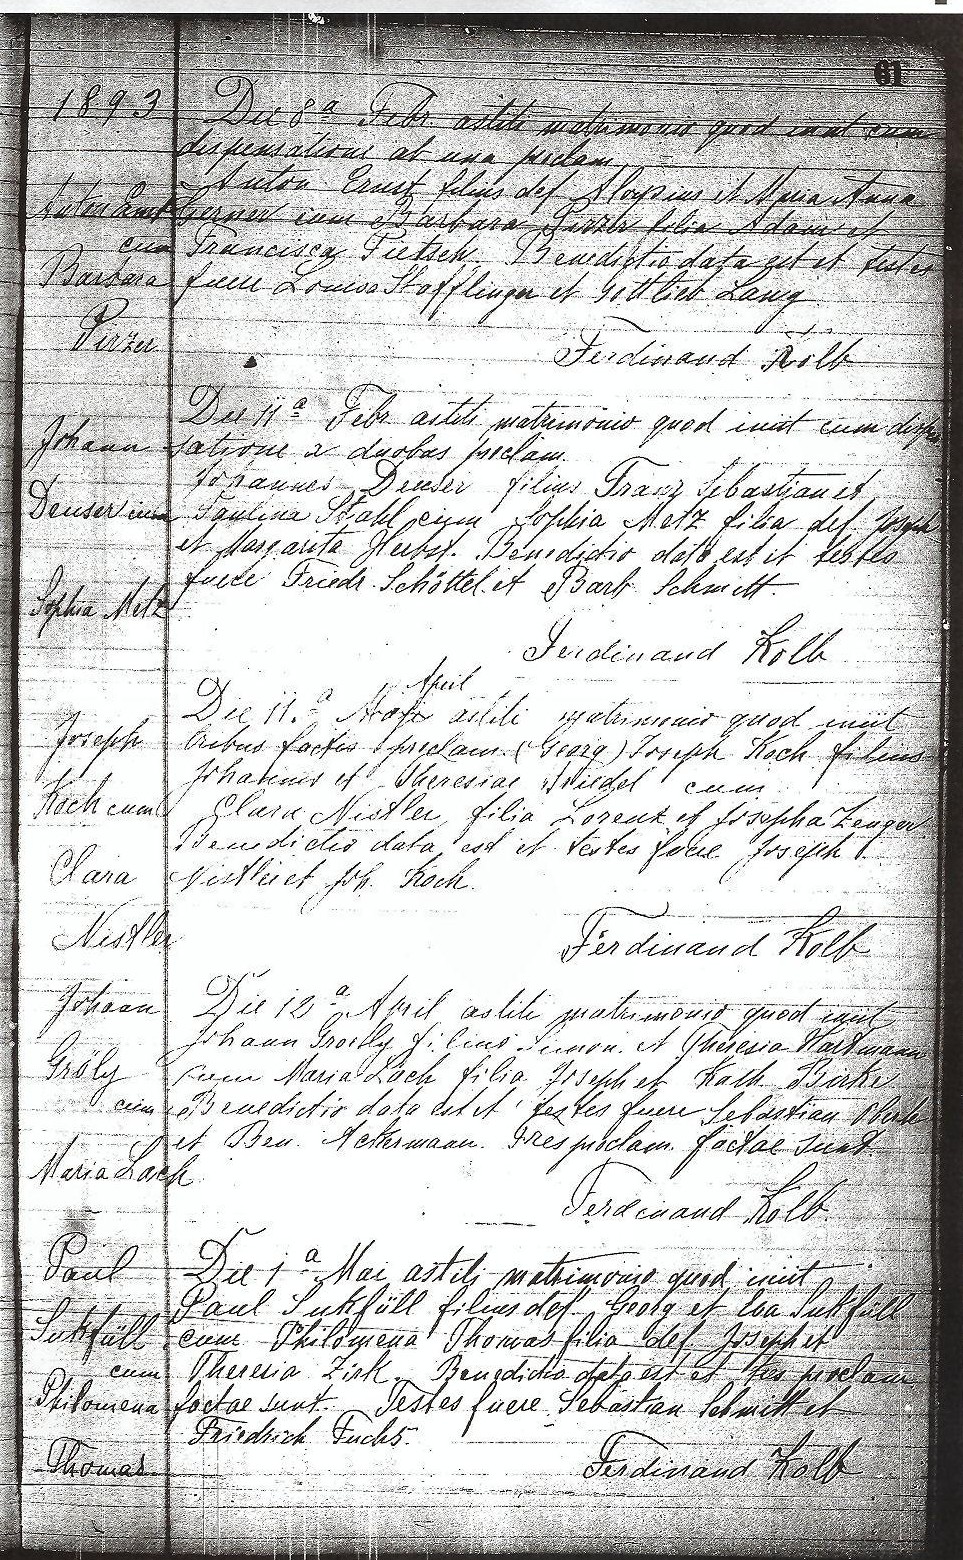 61
1893
Die 8a Febr. astiti matrimonio quod iniit cum
dispensatione ab una proclam.
Anton Ernst filius def Aloysius et Maria Anna
cum Barbara Pirzer filia Adam et
Francisca Tietsch. Benedictio data est et testes
fuere Louisa Stofflinger et Gottlieb Lang
Ferdinand Kolb
Anton Ernst
cum
Barbara
Pirzer
Die 11a Febr astiti matrimonio quod iniit cum dispen
satione a duobus proclam.
Johannes Denser filius Franz Sebastian et
Paulina Stahl cum Sophia Metz filia def Joseph
et Margarita Herbst. Benedictio data est et testes
fuere Friedr. Schöttel et Barb Schmitt.
Ferdinand Kolb
Johann
Denser cum
Sophia Metz
April
Die 11.a astiti matrimonio quod iniit
tribus factis proclam. (Georg) Joseph Koch filius
Johannis et Theresiae cum
Clara Nistler filia Lorenz et Josepha Zenger
Benedictio data est et testes fuere Joseph
Nistler et Joh. Koch.
Ferdinand Kolb
Joseph
Koch cum
Clara
Nistler
Die 12a April astiti matrimonio quod iniit
Johann Groely filius Simon et Theresia Hartmann
cum Maria Lach filia Joseph et Kath Birke
Benedictio data est et testes fuere Sebastian
et Ben. Ackermann. Tres proclam. factae sunt.
Ferdinand Kolb.
Johann
Gröly
cum
Maria Lach
Die 1a Mai astiti matrimonio quod iniit
Paul Sukfüll filius def. Georg et Eva Sukfüll
cum Philomena Thomas filia def Joseph et
Theresia Zirk. Benedictio data est et tres proclam
factae sunt. Testes fuere Sebastian Schmitt et
Friedrich Fuchs.
Ferdinand Kolb
Paul
Sukfüll
cum
Philomena
Thomas